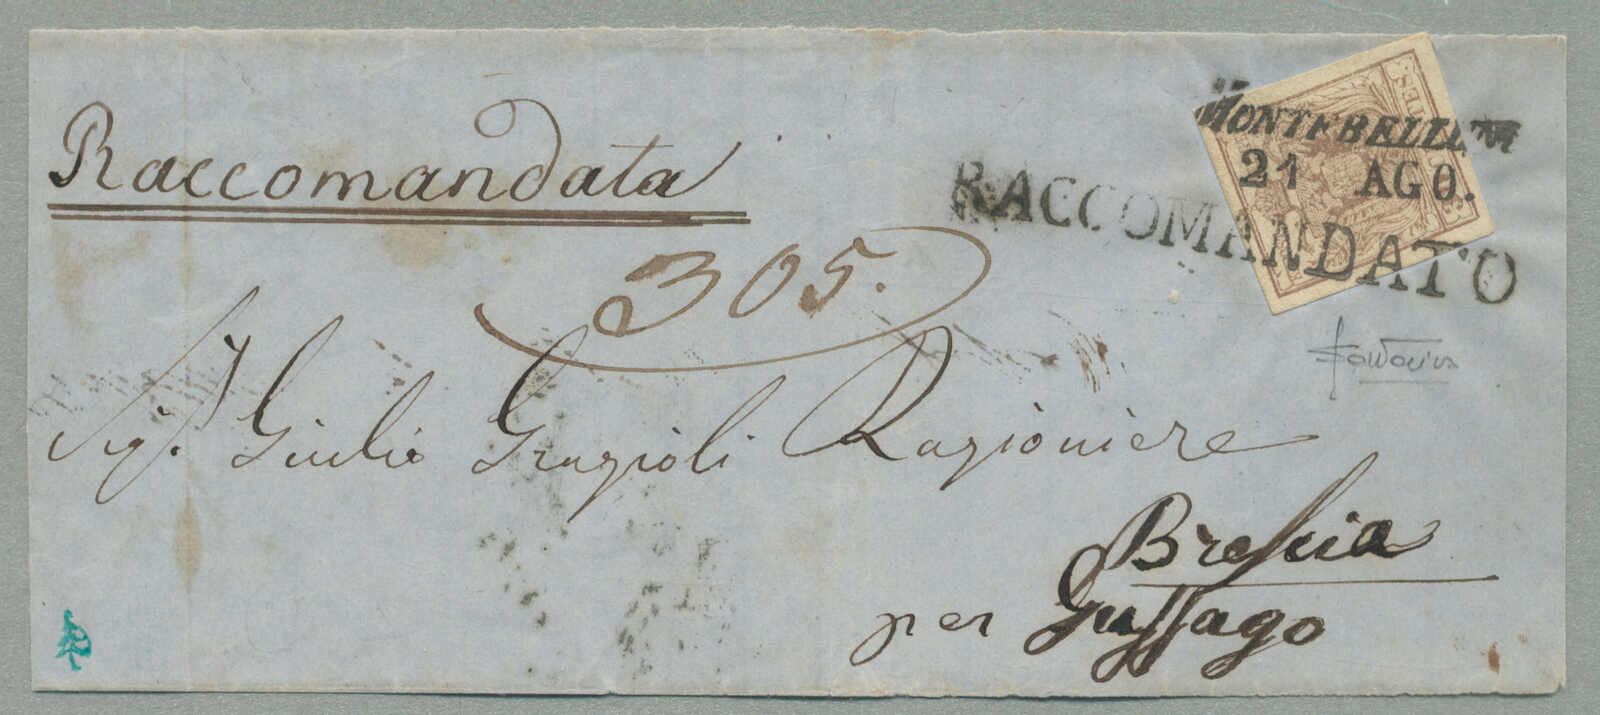 Raccomandata
MONTEBELLUNA
21 AGO.
RACCOMANDATO
305.
Sig.r Giulio Grazioli Ragioniere
Brescia
per Gussago